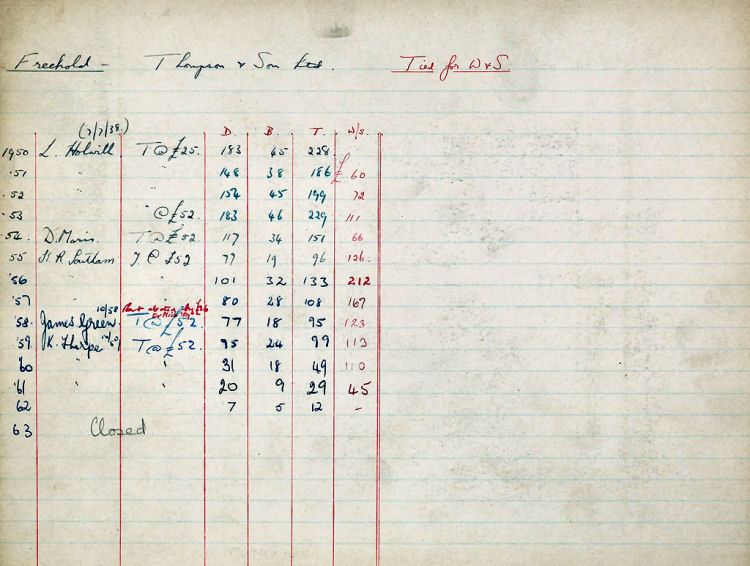 Freehold - Thompson & Son Ltd. Tied for W & S.
(7/7/38.) D. B. T. W/S.
1950 L. Holwill T @ £25. 183 45 228
'51 " " 148 38 186 £ 60
'52 " " 154 45 199 72
'53 " @ £52. 183 46 229 111
'54. D. Maris. T @ £52 117 34 151 66
55 H. R. Southam T. @ £52 77 19 96 126
'56 " " 101 32 133 212
'57 " " 80 28 108 167
10/58 Rent
'58. James Green T @ £52. 77 18 95 123
'59. K. Thorpe T @ £52. 95 24 99 113
60 " " 31 18 49 110
'61 " " 20 9 29 45
62 7 5 12 -
63 Closed